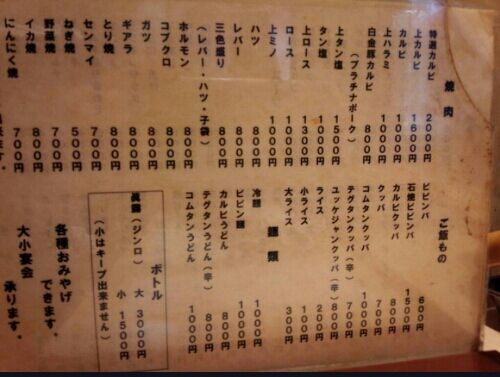 焼肉
特選カルビ 2000円
上カルビ 1600円
カルビ 1000円
上ハラミ 1000円
白金豚カルビ 800円
(プラチナポーク)
上タン塩 1500円
タン塩 1000円
上ロース 1300円
ロース 1000円
上ミノ 1000円
ハツ 800円
レバー 800円
三色盛り 800円
(レバー・ハツ・子袋)
ホルモン 800円
コブクロ 800円
ガツ 800円
ギアラ 800円
とり焼 800円
センマイ 700円
ねぎ焼 500円
野菜焼 700円
イカ焼 800円
にんにく焼 700円
来ます。
ご飯もの
ビビンバ 600円
石焼ビビンバ
カルビクッパ
クッパ
コムタンクッパ 1000円
テグタンクッパ(辛) 700円
ユッケジャンクッパ(辛) 800円
ライス 200円
小ライス 100円
大ライス 300円
麺類
冷麺 1000円
ビビン麺 1000円
カルビうどん 800円
テグタンうどん(辛) 800円
コムタンうどん 1000円
ボトル
眞露(ジンロ) 大 3000円
小 1500円
(小はキープ出来ません)
各種おみやげ
できます。
大小宴会
承ります。